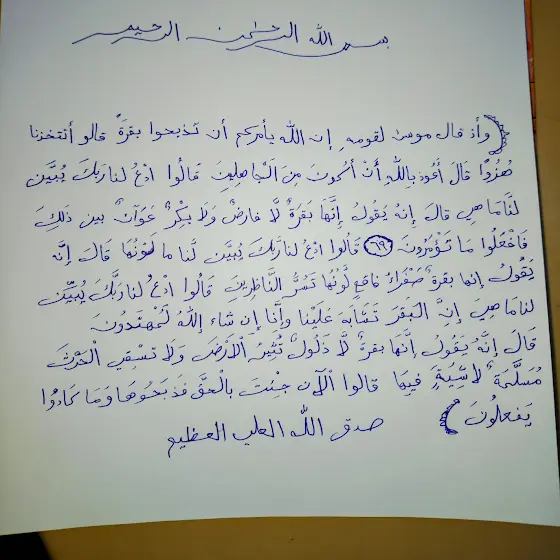 بسم الله الرحمن الرحيم
﴿وأذ قال موسى لقومهِ إن الله يأمركم أن تذبحوا بقرةً قالو أتتخذنا
هُزُوًا قالَ أعُوذ باللهِ أنْ أكونَ مِنَ الْجَاهِلِينَ قَالُوا ادْعُ لنا رَبكَ يُبَيِّن
لَّنَا مَا هِي قالَ إنهُ يَقُولُ إِنَّهَا بَقَرَةٌ لَّا فارضٌ وَلَا بِكْرٌ عَوَانٌ بين ذلِكَ
فَافْعَلُوا مَا تُؤْمَرُونَ (٦٩) قَالُوا ادْعُ لنا رَبَّكَ يُبَيِّن لَّنَا ما لَوْنُهَا قَالَ إنَّه
يَقُولُ إنها بقرةٌ صَفْرَاءُ فاقعٍ لَّوْنُهَا تَسُرُّ النَّاظرِينَ قَالُوا ادْعُ لنا رَبَّكَ يُبَيِّن
لنا ما هِيَ إِنَّ الْبَقَرَ تَشَابَهَ عَلَيْنا وإنا إن شاءَ اللهُ لَمُهْتَدُونَ
قَالَ إنَّهُ يَقُولُ إنَّهَا بقرةٌ لَّا ذَلُولٌ تُثِيرُ الْأَرْضَ وَلَا تسْقِي الْحَرْثَ
مُسَلَّمَةٌ لا شِيَةَ فِيهَا قالوا الْآنَ جِئْتَ بِالْحقِّ فَذَبَحُوهَا وَمَا كَادُوا
يَفْعلُونَ﴾ صدق الله العلي العظيم